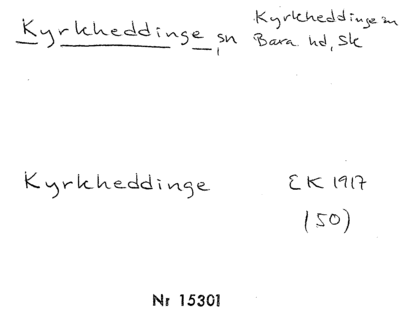 Kyrkheddinge sn
Kyrkheddinge sn
Bara hd, Sk
Kyrkheddinge
EK 1917
(50)
Nr 15301